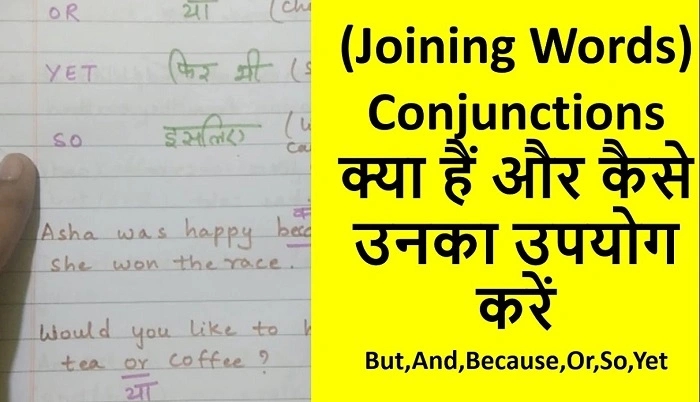 OR या (ch
YET फिर भी (s
SO इसलिए (
ca
Asha was happy bec
she won the race.
Would you like to h
tea or coffee?
या
(Joining Words)
Conjunctions
क्या हैं और कैसे
उनका उपयोग
करें
But,And,Because,Or,So,Yet